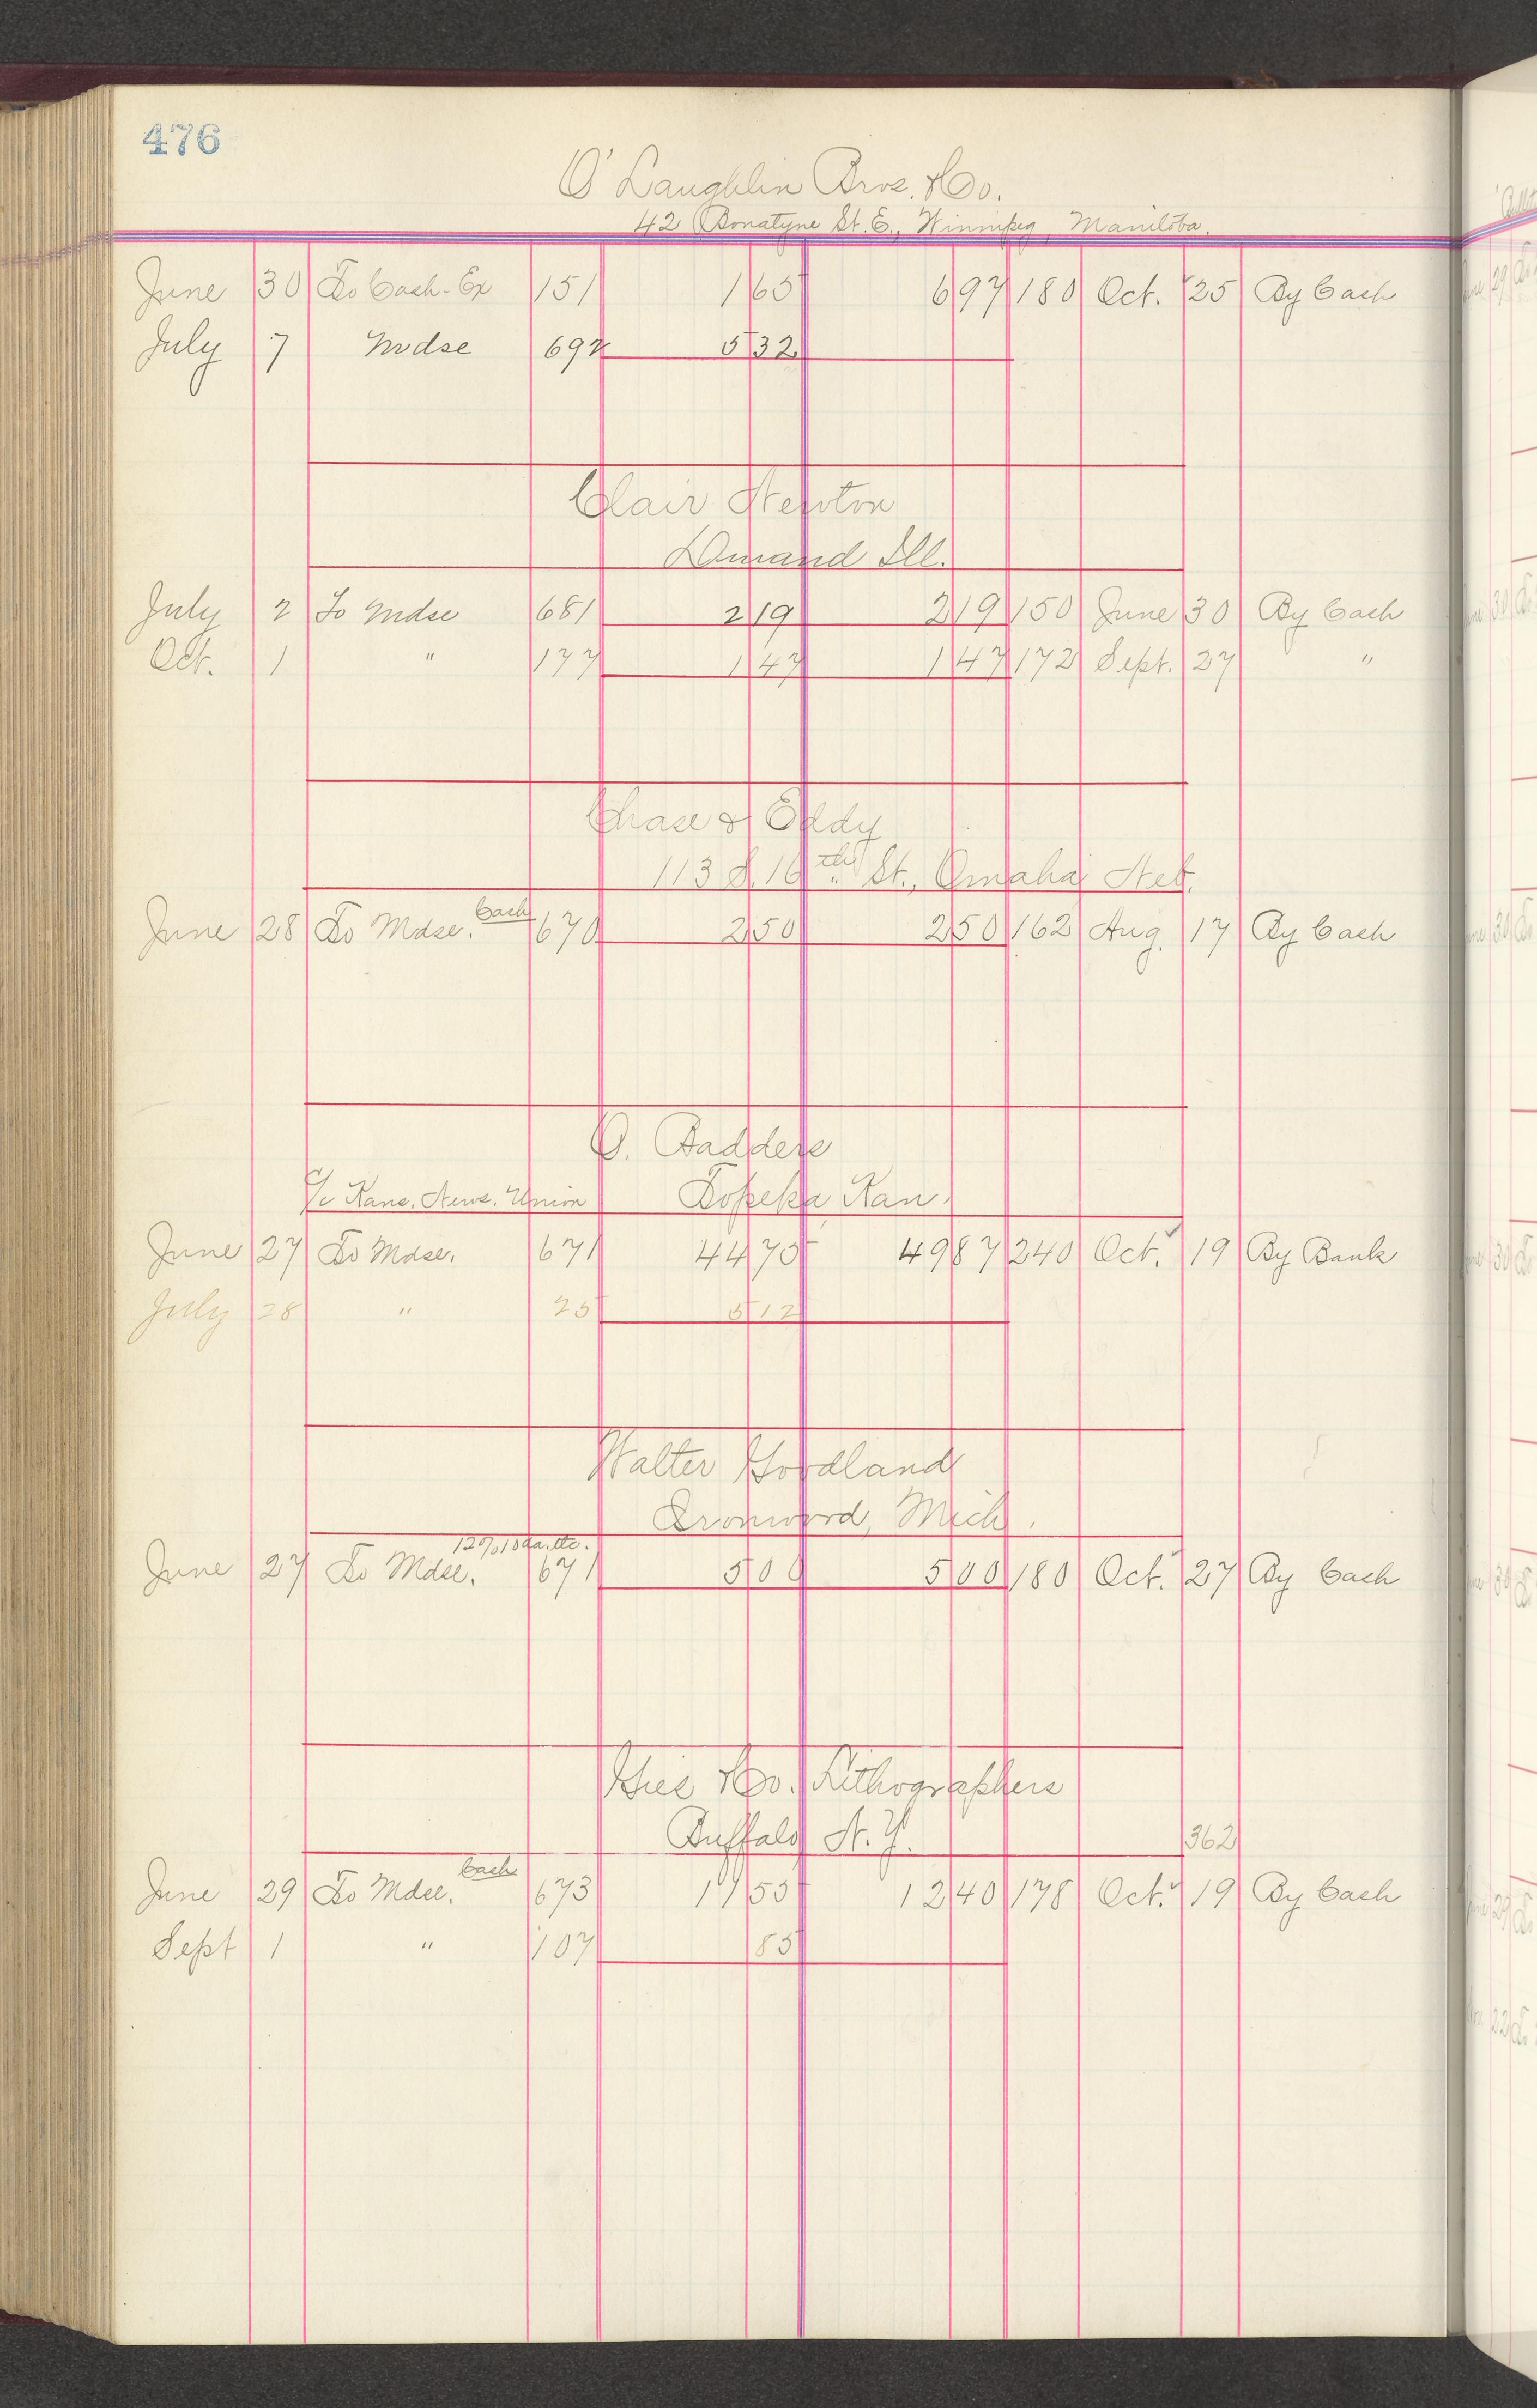 476
O'Laughlin Bros. & Co.
42 Bonatyne St. E., Winnipeg, Manitoba.
June 30 To Cash-Ex 151 1 65 6 97 180 Oct. 25 By Cash
July 7 Mdse 692 5 32
Clair Newton
Omand Ill.
July 2 To Mdse 681 2 19 2 19 150 June 30 By Cash
Oct. 1 " 177 1 47 1 47 172 Sept. 27 "
Chase & Eddy
113 S. 16th St., Omaha Neb.
June 28 To Mdse. Cash 670 2 50 2 50 162 Aug. 17 By Cash
O. Badders
c/o Kans. News. Union Topeka, Kan.
June 27 To Mdse. 671 44 75 49 87 240 Oct. 19 By Bank
July 28 " 25 5 12
Walter Goodland
Ironwood, Mich.
June 27 To Mdse. 671 5 00 5 00 180 Oct. 27 By Cash
Gies & Co. Lithographers
Buffalo N.Y. 362
June 29 To Mdse. Cash 673 11 55 12 40 178 Oct. 19 By Cash
Sept 1 " 107 85